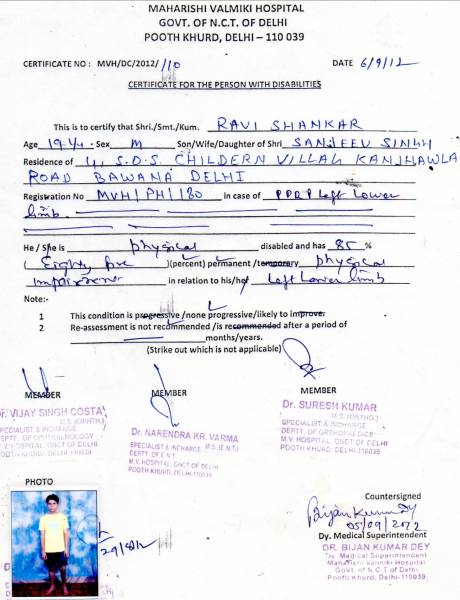 MAHARISHI VALMIKI HOSPITAL
GOVT. OF N.C.T. OF DELHI
POOTH KHURD, DELHI – 110 039
CERTIFICATE NO : MVH/DC/2012/ 110 DATE 6/9/12
CERTIFICATE FOR THE PERSON WITH DISABILITIES
This is to certify that Shri./Smt./Kum. RAVI SHANKAR
Age 19 Y. Sex M Son/Wife/Daughter of Shri SANJEEV SINGH
Residence of 4, S.O.S. CHILDERN VILLAG KANJHAWLA
ROAD BAWANA DELHI
Registration No MVH/PH/180 In case of PPRP Left Lower
limb.
He / She is physical disabled and has 85 %
(Eighty five)(percent) permanent /temporary physical
impairment in relation to his/her Left Lower limb
Note:-
1 This condition is progressive /none progressive/likely to improve.
2 Re-assessment is not recommended /is recommended after a period of
months/years.
(Strike out which is not applicable)
MEMBER
MEMBER
MEMBER
Dr. VIJAY SINGH COSTA
M.S. (OPHTH.)
SPECIALIST & INCHARGE
DEPTT. OF OPHTHALMOLOGY
M.V. HOSPITAL, GNCT OF DELHI
POOTH KHURD, DELHI-110039
Dr. NARENDRA KR. VARMA
M.S. (E.N.T.)
SPECIALIST & INCHARGE
DEPTT. OF E.N.T.
M.V. HOSPITAL, GNCT OF DELHI
POOTH KHURD, DELHI-110039
Dr. SURESH KUMAR
M.S. (ORTHO.)
SPECIALIST & INCHARGE
DEPTT. OF ORTHOPAEDICS
M.V. HOSPITAL, GNCT OF DELHI
POOTH KHURD, DELHI-110039
PHOTO
Countersigned
Bijan Kumar Dey
05/09/2012
Dy. Medical Superintendent
DR. BIJAN KUMAR DEY
Dy. Medical Superintendent
Maharishi Valmiki Hospital
Govt. of N.C.T of Delhi
Pooth Khurd, Delhi-110039